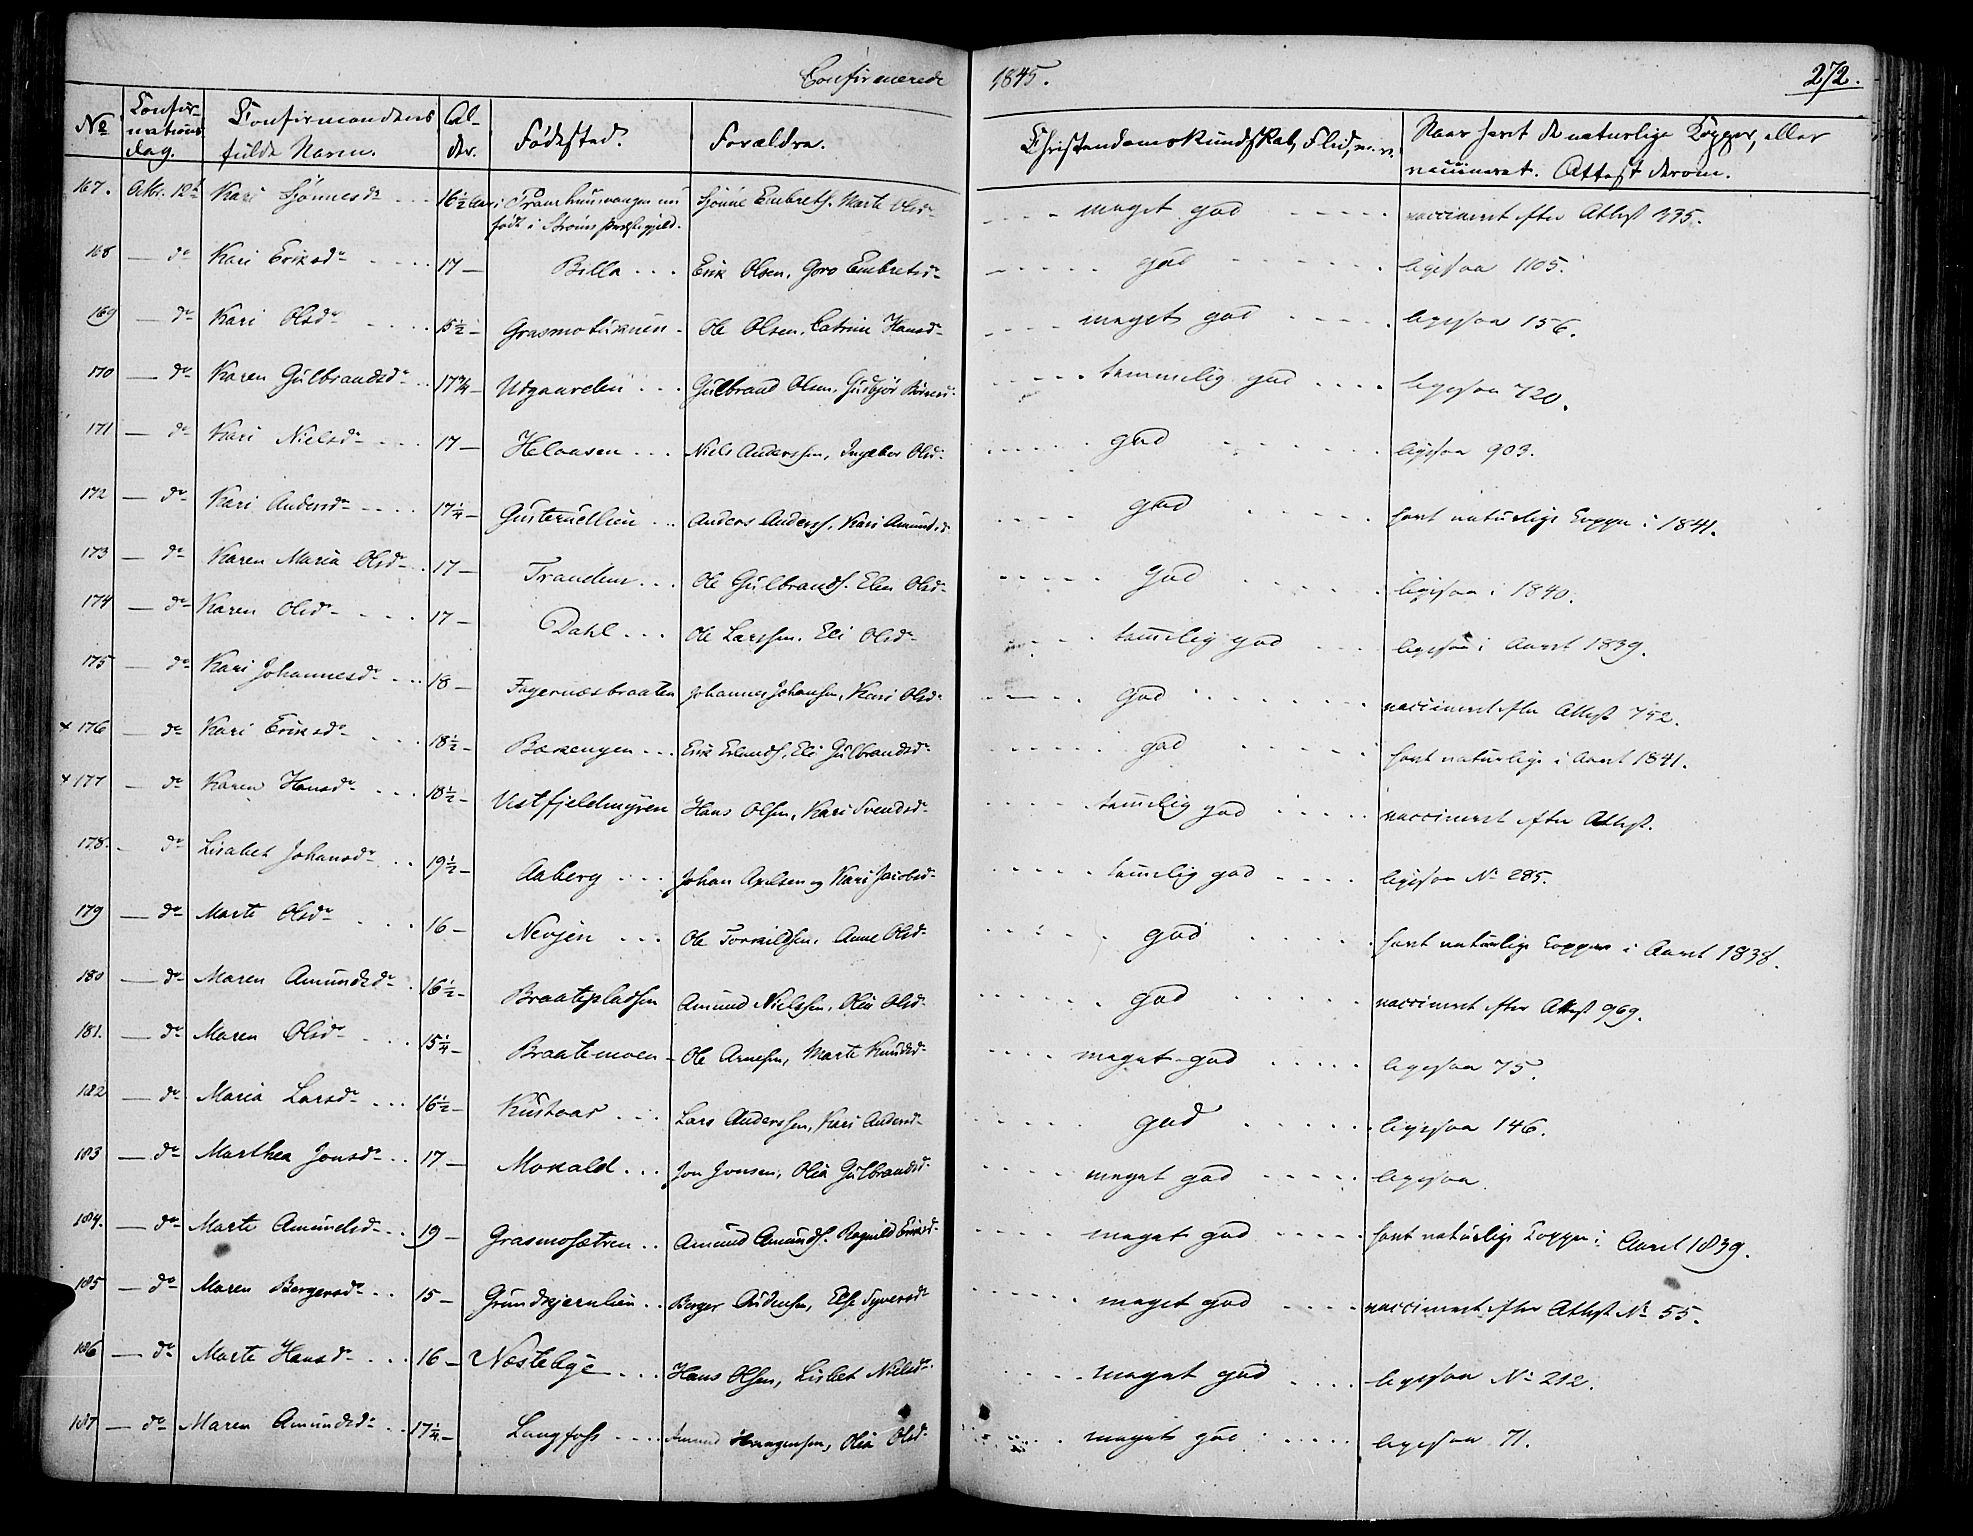 Confirmerede 1845. 272.
No Confirmations dag. Confirmandens fulde Navn. Alder. Fødested. Forældre. Christendomskundskab, Flid, Naar havt de naturlige Kopper, eller vaccineret. Attest derom.
167. Oktr. 12t Kari Sjønnesdr 16½ Aar i
født i Strøms Præstegjeld. Sjønne Embrets. Marte Olsdr meget god vaccineret efter Attest 335.
168 — do Kari Eriksdr 17 — Billa Erik Olsen, Goro Embretsdr god ligesaa 1105.
169 — do Kari Olsdr 15½ — Ole Olsen, Catrine Hansdr meget god ligesaa 156.
170 — do Karen Gulbrandsdr 17¾ — Udgaardeie Gulbrand Olsen, Gudbjør temmelig god ligesaa 720.
171 — do Kari Nielsdr 17 — Helaasen Niels Anderssen, Ingebor Olsdr god ligesaa 903.
172 — do Kari Andersdr 17¼ — Anders Anderss. Kari Amundsdr god havt naturlige Kopper i 1841.
173 — do Karen Maria Olsdr 17 — Tranden Ole Gulbrands. Elen Olsdr god ligesaa i 1840.
174 — do Karen Olsdr 17 — Dahl Ole Larssen. Eli Olsdr tem̄elig god ligesaa i Aaret 1839.
175 — do Kari Johannesdr 18 — Fagernæsbraaten Johannes Johansen, Kari Olsdr god vaccineret efter Attest 752.
× 176 — do Kari Eriksdr 18½ — Bæxengen Erik Erlands. Eli Gulbrandsdr god havt naturlige i Aaret 1841.
× 177 — do Karen Hansdr 18½ — Vestfjeldmyren Hans Olsen, Kari Svendsdr tem̄elig god vaccineret efter Attest.
178. do Lisabet Johansdr 19½ — Aaberg Johan Axelsen og Kari Jacobsd. tem̄elig god ligesaa No 285.
179 — do Marte Olsdr 16 — Nevjen Ole Torkildsen, Anne Olsdr god havt naturlige Kopper i Aaret 1838.
180 — do Maren Amundsdr 16½ — Braatepladsen Amund Nielssen, Olia Olsdr god vaccineret efter Attest 969.
181. — do Maren Olsdr 15¼ — Braatemoen Ole Arnesen, Marte Knudsdr meget god ligesaa 75.
182 — do Maria Larsdr 16½ — Kustaas Lars Anderssen, Kari Andersdr god ligesaa 146.
183 — do Marthea Jonsdr 17 — Mokald Jon Jonsen, Olia Gulbrandsd. meget god ligesaa
184. — do Marte Amundsdr 19 — Grasmosætren Amund Amunds. Ragnild Eriksdr meget god havt naturlige Kopper i Aaret 1839.
185 — do Maren Bergersdr 15 — Grundtjernlien Berger Audensen, Else Syversdr meget god vaccineret efter Attest No 55.
186 — do Marte Hansdr 16 — Næstebye Hans Olsen, Lisbet Nielsdr meget god ligesaa No 212.
187 — do Maren Amundsdr 17¼ — Langfoss Amund Haagensen, Olia Olsdr meget god ligesaa 71.